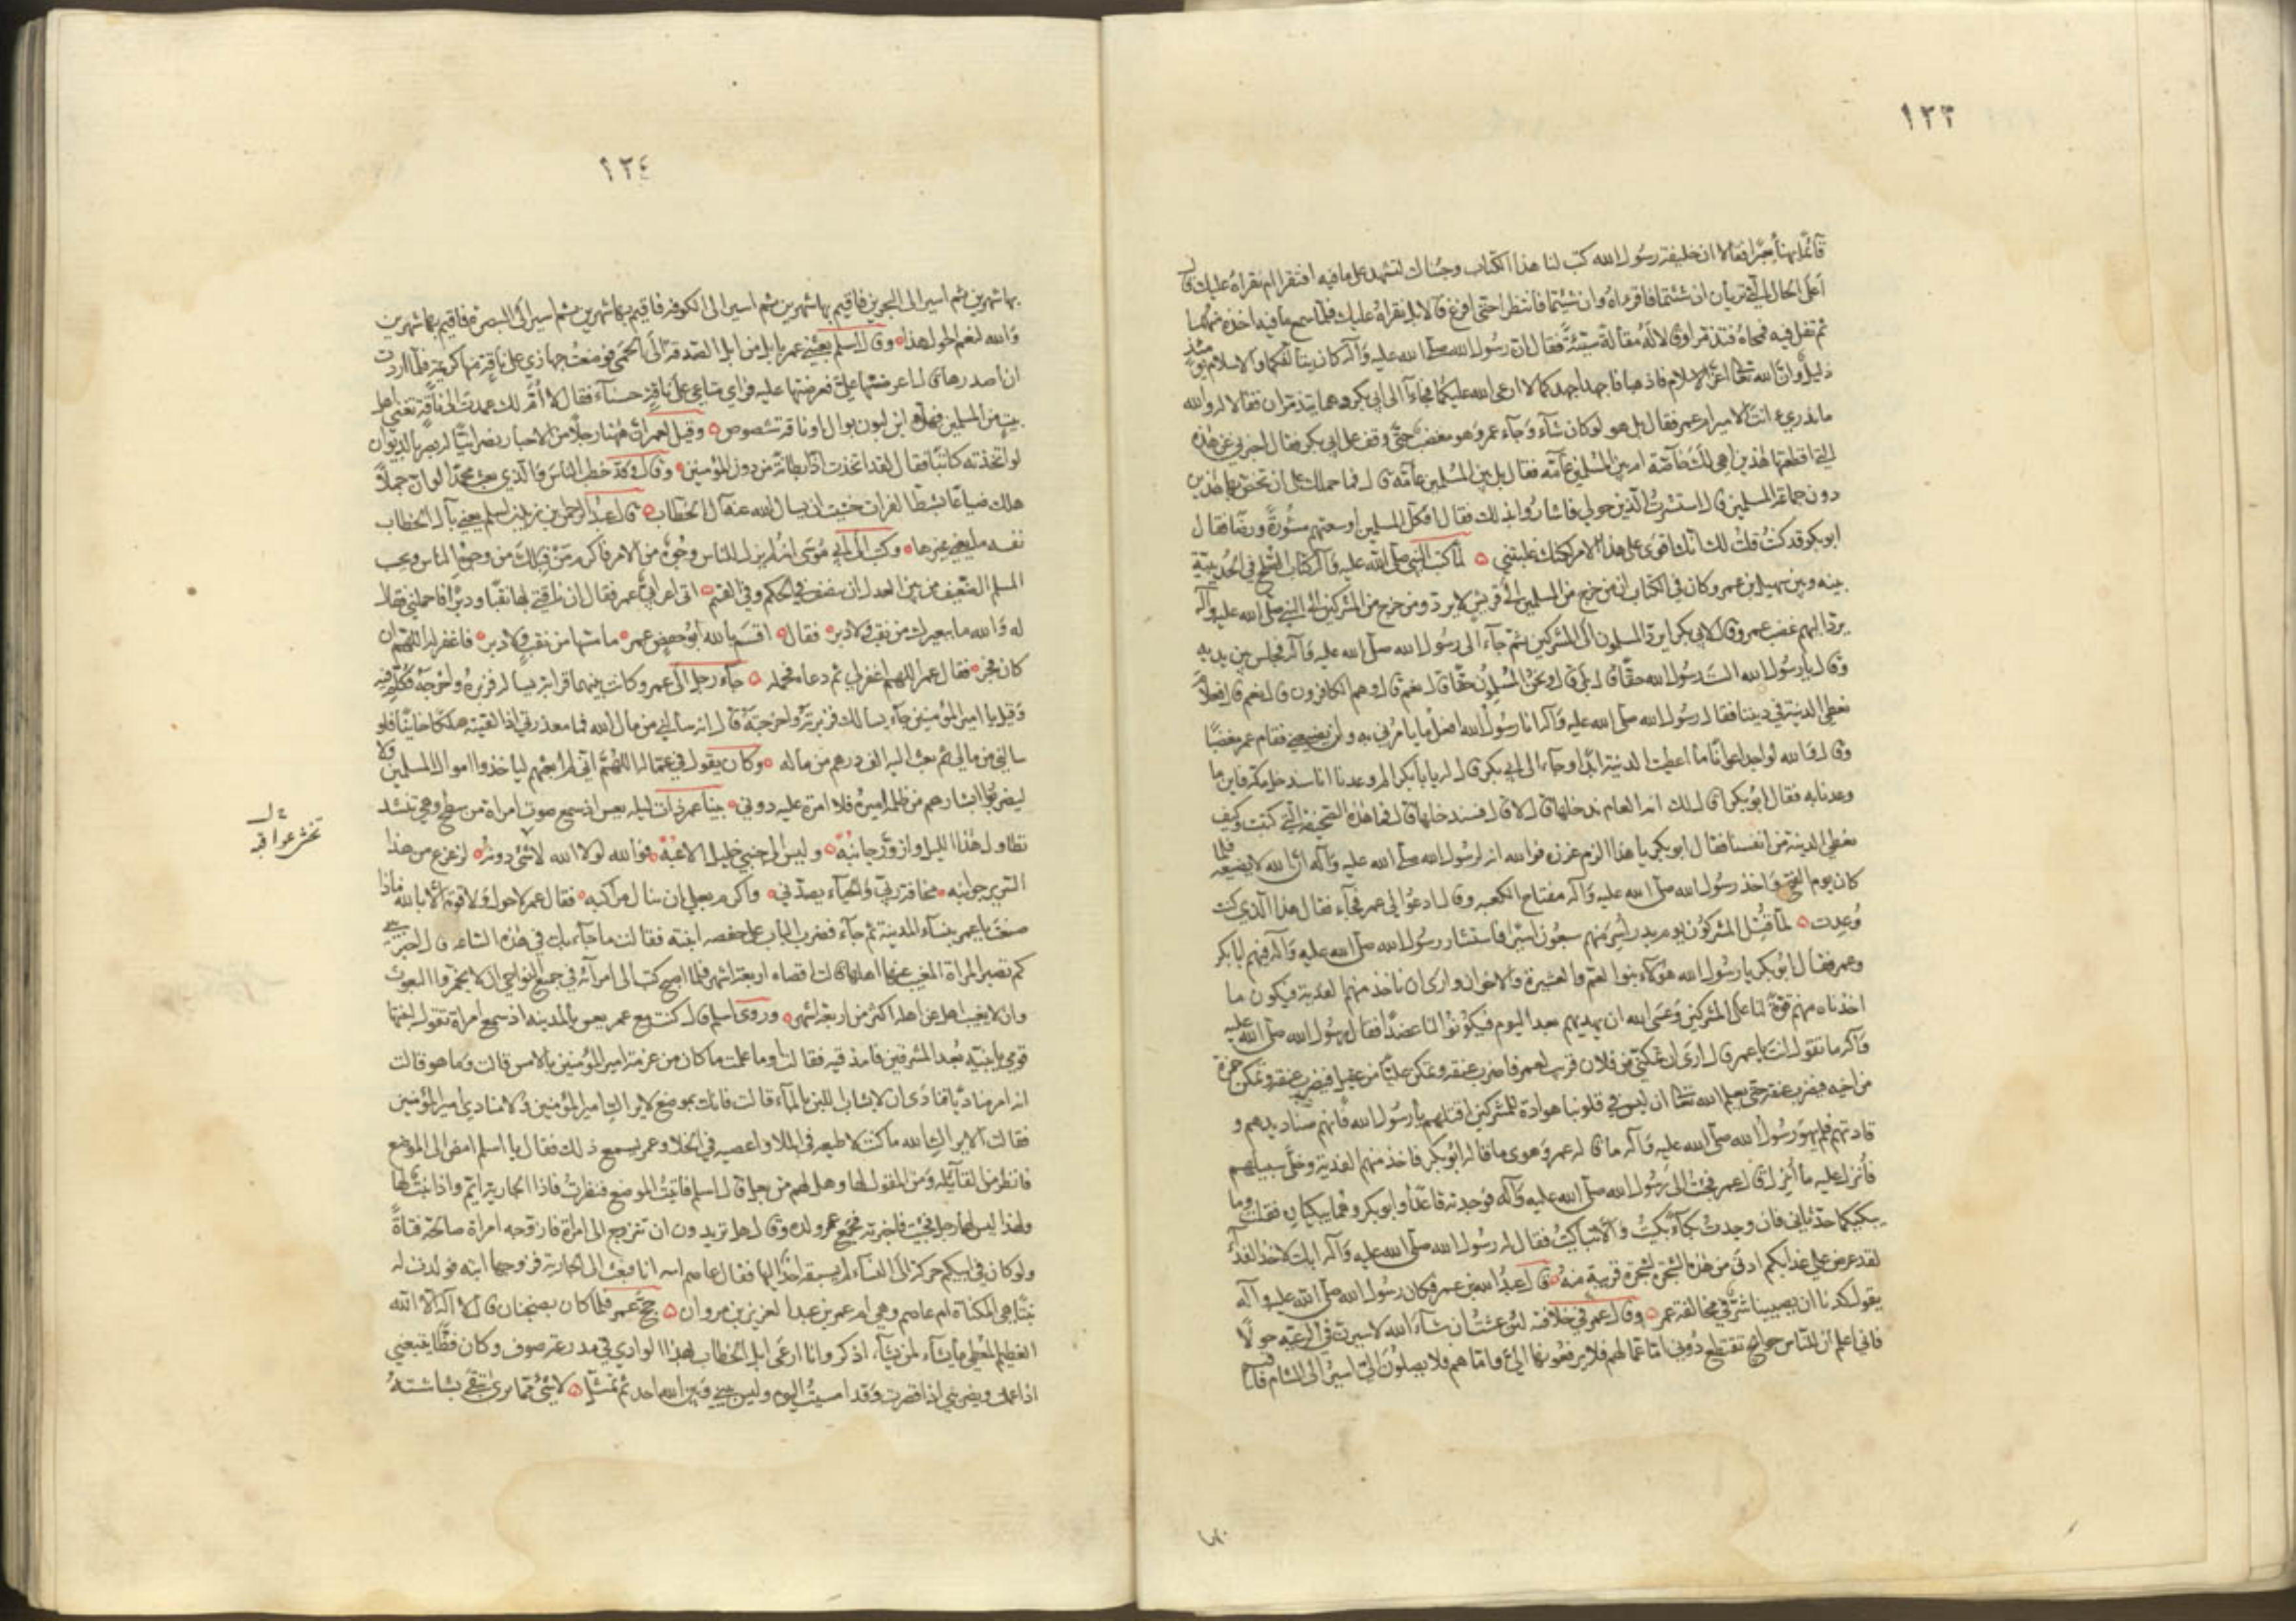 ١٢٣
قائما يهنأ بعيرا فقالا ان خليفة رسول الله كتب لنا هذا الكتاب وجئناك لتشهد على ما فيه افتقرا ام نقراه عليك قال
اعلى الحال التي تريان ان شئتما فاقرءاه وان شئتما فانتظرا حتى افرغ قالا بل نقراه عليك فلما سمع ما فيه اخذه منهما
ثم تفل فيه فمحاه فتذمرا وقالا له مقالة سيئة فقال ان رسول الله صلى الله عليه وآله كان يتألفكما والاسلام يومئذ
ذليل وان الله تعالى اعز الاسلام فاذهبا فاجهدا جهدكما لا ارعى الله عليكما فجاءا الى ابي بكر وهما يتذمران فقالا له والله
ما ندري ءانت الامير ام عمر فقال بل هو لو كان شاء وجاء عمر وهو مغضب حتى وقف على ابي بكر فقال اخبرني عن هذه
التي اقطعتها هذين اهي لك خاصة ام بين المسلمين عامة فقال بل بين المسلمين عامة قال فما حملك على ان تخص بها هذين
دون جماعة المسلمين قال استشرت الذين حولي فاشاروا بذلك فقال افكل المسلمين اوسعتهم مشورة ورضا فقال
ابو بكر قد كنت قلت لك انك اقوى على هذا الامر لكنك غلبتني ۝ لما كتب النبي صلى الله عليه وآله كتاب الصلح في الحديبية
بينه وبين سهيل بن عمرو وكان في الكتاب ان من خرج من المسلمين الى قريش لا يرد ومن خرج من المشركين الى النبي صلى الله عليه وآله
يرد اليهم غضب عمر وقال لابي بكر ايرد المسلمون الى المشركين ثم جاء الى رسول الله صلى الله عليه وآله فجلس بين يديه
وقال يا رسول الله الست رسول الله حقا قال بلى قال ونحن المسلمون حقا قال نعم قال وهم الكافرون قال نعم قال فعلام
نعطي الدنية في ديننا فقال رسول الله صلى الله عليه وآله انا رسول الله افعل ما يامرني به ولن يضيعني فقام عمر مغضبا
وقال والله لو اجد اعوانا ما اعطيت الدنية ابدا وجاء الى ابي بكر قال له يا با بكر الم وعدنا انا سندخل مكة فاين ما
وعدنا به فقال ابو بكر اقال لك انه العام ندخلها قال لا قال فسندخلها قال فما هذه الصحيفة التي كتبت وكيف
نعطي الدنية من انفسنا فقال ابو بكر يا هذا الزم غرزه فوالله انه لرسول الله صلى الله عليه وآله ان الله لا يضيعه فلما
كان يوم الفتح واخذ رسول الله صلى الله عليه وآله مفتاح الكعبه وقال ادعوا لي عمر فجاء فقال هذا الذي كنت
وعدت ۝ لما قتل المشركون يوم بدر اسر منهم سبعون اسيرا فاستشار رسول الله صلى الله عليه وآله فيهم ابا بكر
وعمر فقال ابو بكر يا رسول الله هؤلاء بنوا العم والعشيرة والاخوان وارى ان ناخذ منهم الفدية فيكون ما
اخذناه منهم قوة لنا على المشركين وعسى الله ان يهديهم بعد اليوم فيكونوا لنا عضدا فقال رسول الله صلى الله عليه
وآله ما تقول انت يا عمر قال ارى ان تمكنني من فلان قريب لعمر فاضرب عنقه وتمكن عليا من عقيل فيضرب عنقه وتمكن حمزة
من اخيه فيضرب عنقه حتى يعلم الله تعالى ان ليس في قلوبنا هوادة للمشركين اقتلهم يا رسول الله فانهم صناديدهم و
قادتهم فلم يهو رسول الله صلى الله عليه وآله ما قال عمر وهوى ما قاله ابو بكر فاخذ منهم الفدية وخلى سبيلهم
فانزل عليه ما انزل قال عمر فجئت الى رسول الله صلى الله عليه وآله فوجدته قاعدا وابو بكر وهما يبكيان فقلت وما
يبكيكما حدثاني فان وجدت بكاء بكيت والا تباكيت فقال له رسول الله صلى الله عليه وآله ابك لاخذ الفداء
لقد عرض علي عذابكم ادنى من هذه الشجرة لشجرة قريبة منه ۝ قال عبد الله بن عمر فكان رسول الله صلى الله عليه وآله
يقول كدنا ان يصيبنا شر في مخالفة عمر ۝ وقال عمر في خلافته لئن عشت ان شاء الله لاسيرن في الرعيه حولا
فاني اعلم ان للناس حوائج تقتطع دوني اما عمالهم فلا يرفعونها الي واما هم فلا يصلون الي اسير الى الشام فاقيم
١٢٤
بها شهرين ثم اسير الى البحرين فاقيم بها شهرين ثم اسير الى الكوفه فاقيم بها شهرين ثم اسير الى البصرة فاقيم بها شهرين
والله لنعم الحول هذا ۝ وقال اسلم بعثني عمر بابل من ابل الصدقة الى الحمى فوضعت جهازي على ناقة منها كريمة فلما اردت
ان اصدرها قال اعرضها علي فعرضتها عليه فراى متاعي على ناقة حسناء فقال لا ام لك عمدت الى ناقة تغني اهل
بيت من المسلمين فهلا ابن لبون بوال او ناقة شصوص ۝ وقيل لعمر ان ههنا رجلا من الاحبار نصرانيا له بصر بالديوان
لو اتخذته كاتبا فقال لقد اتخذت اذا بطانة من دون المؤمنين ۝ وقال وقد خطب الناس والذي بعث محمدا لو ان جملا
هلك ضياعا بشط الفرات خشيت ان يسال الله عنه آل الخطاب ۝ قال عبد الرحمن بن زيد بن اسلم يعني بآل الخطاب
نفسه ما يعني غيرها ۝ وكتب الى ابي موسى انه لم يزل للناس وجوه من الامر فاكرم من قبلك من وجوه الناس وبحسب
المسلم الضعيف من بين العدل ان ينصف في الحكم وفي القسم ۝ اتى اعرابي عمر فقال ان ناقتي بها نقبا ودبرا فاحملني فقال
له والله ما ببعيرك من نقب ولا دبر ۝ فقال ۝ اقسم بالله ابو حفص عمر ۝ ما مسها من نقب ولا دبر ۝ فاغفر له اللهم ان
كان فجر ۝ فقال عمر اللهم اغفر لي ثم دعاه فحمله ۝ جاء رجل الى عمر وكانت بينهما قرابة يساله فزبره واخرجه فكلم فيه
وقيل يا امير المؤمنين جاء يسالك فزبرته واخرجته قال انه سالني من مال الله فما معذرتي اذا لقيته ملكا خائنا فلو
سالني من مالي ثم بعث اليه الف درهم من ماله ۝ وكان يقول في عماله اللهم اني لم ابعثهم لياخذوا اموال المسلمين ولا
ليضربوا ابشارهم من ظلمه اميره فلا امرة عليه دوني ۝ بينا عمر ذات ليله يعس اذ سمع صوت امراة من سطح وهي تنشد
تطاول هذا الليل وازور جانبه ۝ وليس الى جنبي خليل الاعبه ۝ فوالله لولا الله لا شئ دونه ۝ لزعزع من هذا
السرير جوانبه ۝ مخافة ربي والحياء يصدني ۝ واكرم بعلي ان تنال مراكبه ۝ فقال عمر لا حول ولا قوة الا بالله ماذا
صنعت يا عمر بنساء المدينة ثم جاء فضرب الباب على حفصه ابنته فقالت ما جاء بك في هذه الساعه قال اخبريني
كم تصبر المراة المغيب عنها اهلها قالت اقصاه اربعة اشهر فلما اصبح كتب الى امرائه في جميع النواحي ان لا تجمروا البعوث
وان لا يغيب رجل عن اهله اكثر من اربعة اشهر ۝ وروى اسلم قال كنت مع عمر يعس بالمدينه اذ سمع امراة تقول لبنتها
قومي يا بنية الى اللبن بعد المشرقين فامذقيه فقالت اوما علمت ما كان من عزمة امير المؤمنين بالامس قالت وما هو قالت
انه امر مناديا فنادى ان لا يشاب اللبن بالماء قالت فانك بموضع لا يراك امير المؤمنين ولا منادي امير المؤمنين
فقالت والله ما كنت لاطيعه في الملا واعصيه في الخلا وعمر يسمع ذلك فقال يا اسلم امض الى الموضع
فانظر من القائلة ومن المقول لها وهل لهم من رجل قال اسلم فاتيت الموضع فنظرت فاذا الجارية ايم واذا بنت لها
واذا ليس لها رجل فجئت فاخبرته فجمع عمر ولده وقال هل تريدون ان تتزوج الى امراة فازوجه امراة صالحة فتاة
ولو كان في ابيكم حركة الى النساء لم يسبقه احد اليها فقال عاصم ابنه انا فبعث الى الجارية فزوجها ابنه فولدت له
بنتا هي المكناة ام عاصم وهي ام عمر بن عبد العزيز بن مروان ۝ حج عمر فلما كان بضجنان قال لا اله الا الله
العظيم المعطي ما يشاء لمن يشاء اذكر وانا ارعى ابل الخطاب بهذا الوادي في مدرعة صوف وكان فظا يتبعني
اذا عملت ويضربني اذا قصرت وقد امسيت اليوم وليس بيني وبين الله احد ثم تمثل ۝ لا شئ مما يرى تبقى بشاشته
تخش عواقبه